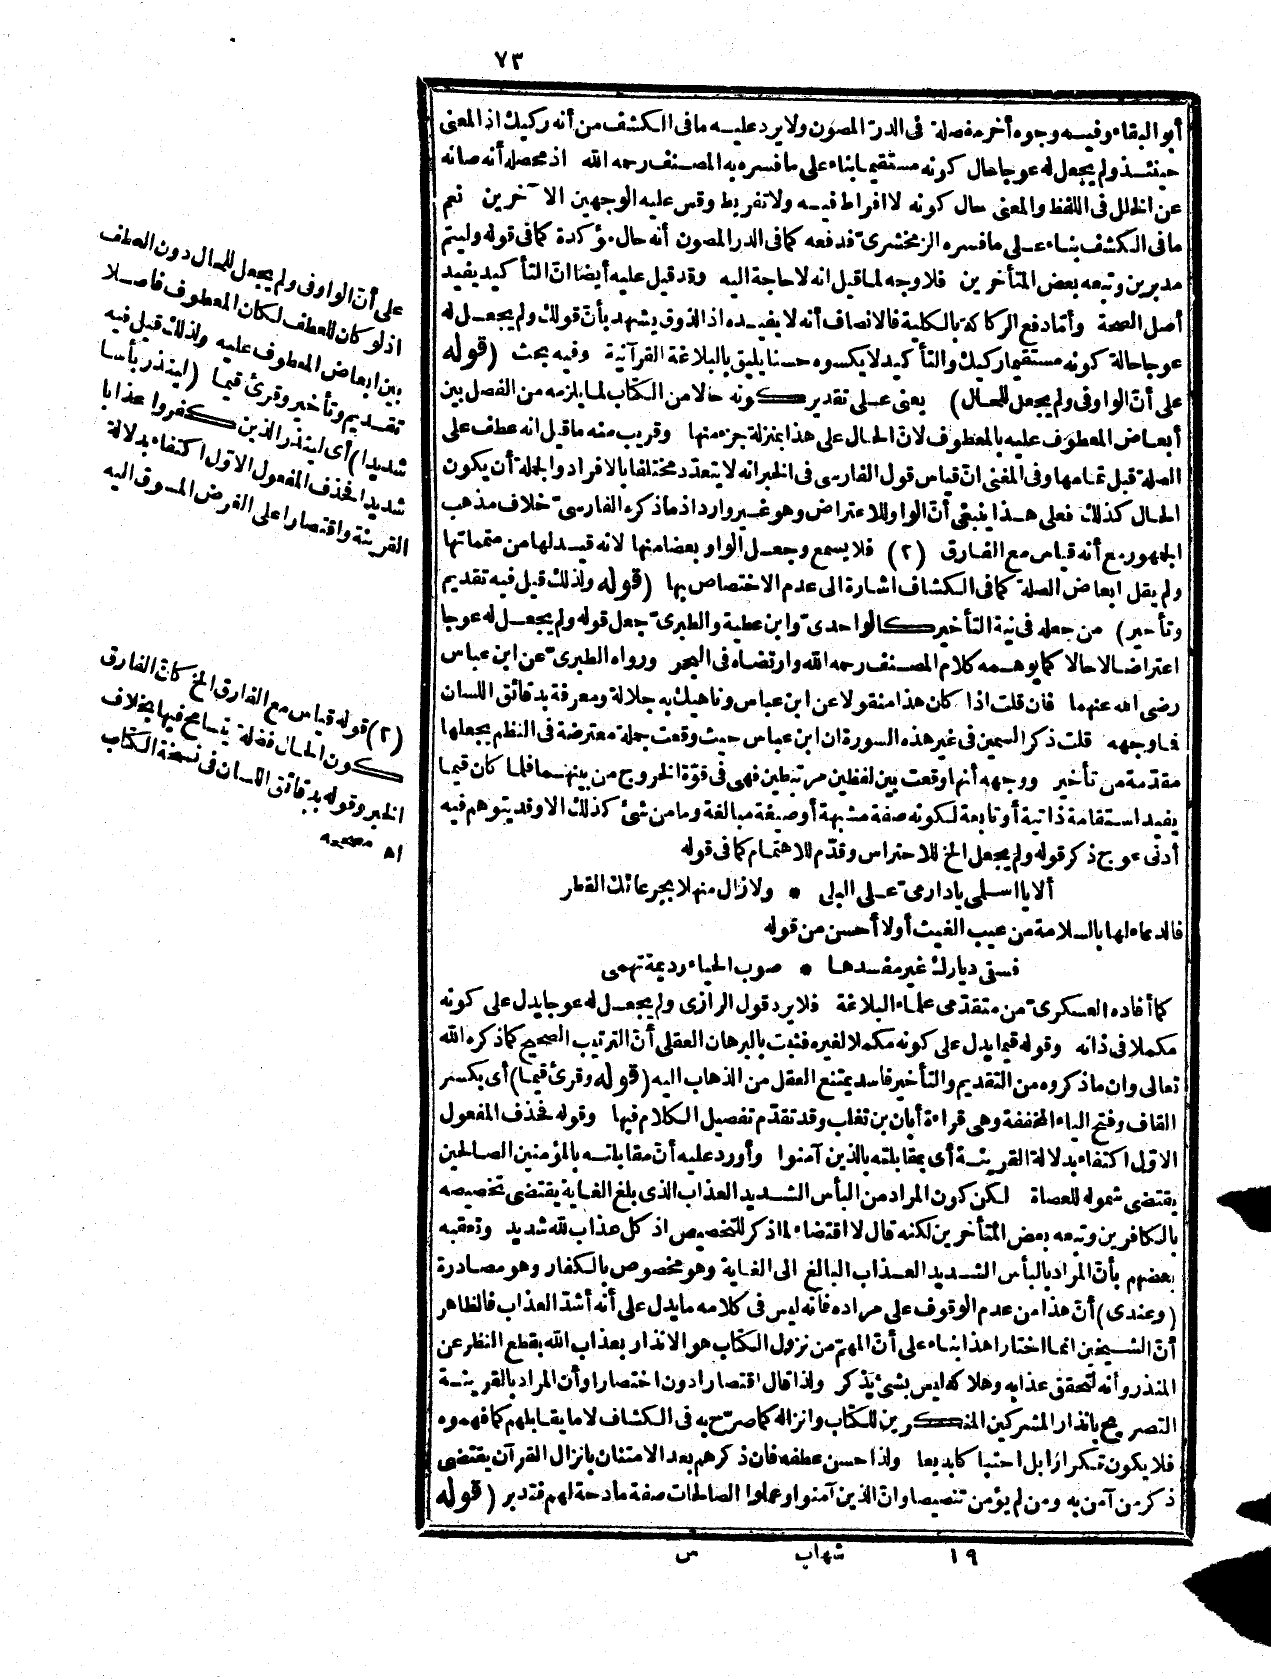 ٧٣
أبو البقاء وفيه وجوه أخر مفصلة في الدرّ المصون ولا يرد عليه ما في الكشف من أنه ركيك اذ المعنى
حينئذ ولم يجعل له عوجا حال كونه مستقيما بناء على ما فسره به المصنف رحمه الله اذ محصله أنه صانه
عن الخلل في اللفظ والمعنى حال كونه لا افراط فيه ولا تفريط وقس عليه الوجهين الآخرين نم
ما في الكشف بناء على ما فسره الزمخشري قد دفعه كما في الدر المصون أنه حال مؤكدة كما في قوله وليتم
مدبرين وتبعه بعض المتأخرين فلا وجه لما قيل انه لا حاجة اليه وقد قيل عليه أيضا انّ التأكيد يفيد
أصل الصحة وأمّا دفع الركاكة بالكلية فالانصاف أنه لا يفيده اذ الذوق يشهد بأنّ قولك ولم يجعل له
عوجا حالة كونه مستقيما ركيك والتأكيد لا يكسوه حسنا يليق بالبلاغة القرآنية وفيه بحث (قوله
على أنّ الواو في ولم يجعل للحال) يعني على تقدير كونه حالا من الكتاب لما يلزمه من الفصل بين
أبعاض المعطوف عليه بالمعطوف لانّ الحال على هذا بمنزلة جزء منها وقريب منه ما قيل انه عطف على
الصلة قبل تمامها وفي المغني انّ قياس قول الفارسي في الخبر انه لا يتعدّد مختلفا بالافراد والجملة أن يكون
الحال كذلك فعلى هذا ينبغي أنّ الواو للاعتراض وهو غير وارد اذ ما ذكره الفارسيّ خلاف مذهب
الجمهور مع أنه قياس مع الفارق (٢) فلا يسمع وجعل الواو بعضا منها لانه قيد لها من متمماتها
ولم يقل ابعاض الصلة كما في الكشاف اشارة الى عدم الاختصاص بها (قوله ولذلك قيل فيه تقديم
وتأخير) من جعله في نية التأخير كالواحديّ وابن عطية والطبريّ جعل قوله ولم يجعل له عوجا
اعتراضا لا حالا كما يوهمه كلام المصنف رحمه الله وارتضاه في البحر ورواه الطبريّ عن ابن عباس
رضي الله عنهما فان قلت اذا كان هذا منقولا عن ابن عباس وناهيك به جلالة ومعرفة بدقائق اللسان
فما وجهه قلت ذكر السمين في غير هذه السورة ان ابن عباس حيث وقعت جملة معترضة في النظم يجعلها
مقدّمة من تأخير ووجهه أنها وقعت بين لفظين مرتبطين فهي في قوّة الخروج من بينهما فلما كان قيما
يفيد استقامة ذاتية أو تابعة لكونه صفة مشبهة أو صيغة مبالغة وما من شئ كذلك الا وقد يتوهم فيه
أدنى عوج ذكر قوله ولم يجعل الخ للاحتراس وقدّم للاهتمام كما في قوله
ألا يا اسلمي يا دار ميّ على البلى * ولا زال منهلا بجرعائك القطر
فالدعاء لها بالسلامة من عيب الغيث أولا أحسن من قوله
فسقى ديارك غير مفسدها * صوب الحياء وديمة تهمي
كما أفاده العسكريّ من متقدّمي علماء البلاغة فلا يرد قول الرازي ولم يجعل له عوجا يدل على كونه
مكملا في ذاته وقوله قيما يدل على كونه مكملا لغيره فثبت بالبرهان العقلي أنّ الترتيب الصحيح كما ذكره الله
تعالى وان ما ذكروه من التقديم والتأخير فاسد يمتنع العقل من الذهاب اليه (قوله وقرئ قيما) أي بكسر
القاف وفتح الياء المخففة وهي قراءة أبان بن تغلب وقد تقدّم تفصيل الكلام فيها وقوله فحذف المفعول
الاوّل اكتفاء بدلالة القرينة أي بمقابلته بالذين آمنوا وأورد عليه أنّ مقابلته بالمؤمنين الصالحين
يقتضي شموله للعصاة لكن كون المراد من البأس الشديد العذاب الذي بلغ الغاية يقتضي تخصيصه
بالكافرين وتبعه بعض المتأخرين لكنه قال لا اقتضاء لما ذكر للتخصيص اذ كل عذاب لله شديد وتعقبه
بعضهم بأنّ المراد بالبأس الشديد العذاب البالغ الى الغاية وهو مخصوص بالكفار وهو مصادرة
(وعندي) أنّ هذا من عدم الوقوف على مراده فانه ليس في كلامه ما يدل على أنه أشدّ العذاب فالظاهر
أنّ الشيخين انما اختارا هذا بناء على أنّ المهمّ من نزول الكتاب هو الانذار بعذاب الله بقطع النظر عن
المنذر وأنه لتحقق عذابه وهلاكه ليس بشئ يذكر ولذا قال اقتصارا دون اختصارا وأن المراد بالقرينة
التصريح بانذار المشركين المنكرين للكتاب وانزاله كما صرّح به في الكشاف لا ما يقابلهم كما فهموه
فلا يكون تكرارا بل احتباكا بديعا ولذا حسن عطفه فان ذكرهم بعد الامتنان بانزال القرآن يقتضي
ذكر من آمن به ومن لم يؤمن تنصيصا وانّ الذين آمنوا وعملوا الصالحات صفة مادحة لهم فتدبر (قوله
١٩ شهاب س
على أنّ الواو في ولم يجعل للحال دون العطف
اذ لو كان للعطف لكان المعطوف فاصلا
بين ابعاض المعطوف عليه ولذلك قيل فيه
تقديم وتأخير وقرئ قيما (لينذر بأسا
شديدا) أي لينذر الذين كفروا عذابا
شديدا فحذف المفعول الاوّل اكتفاء بدلالة
القرينة واقتصارا على الغرض المسوق اليه
(٢) قوله قياس مع الفارق الخ كانّ الفارق
كون الحال فضلة يتسامح فيها بخلاف
الخبر وقوله بدقائق اللسان في نسخة الكتاب
اه مصححه